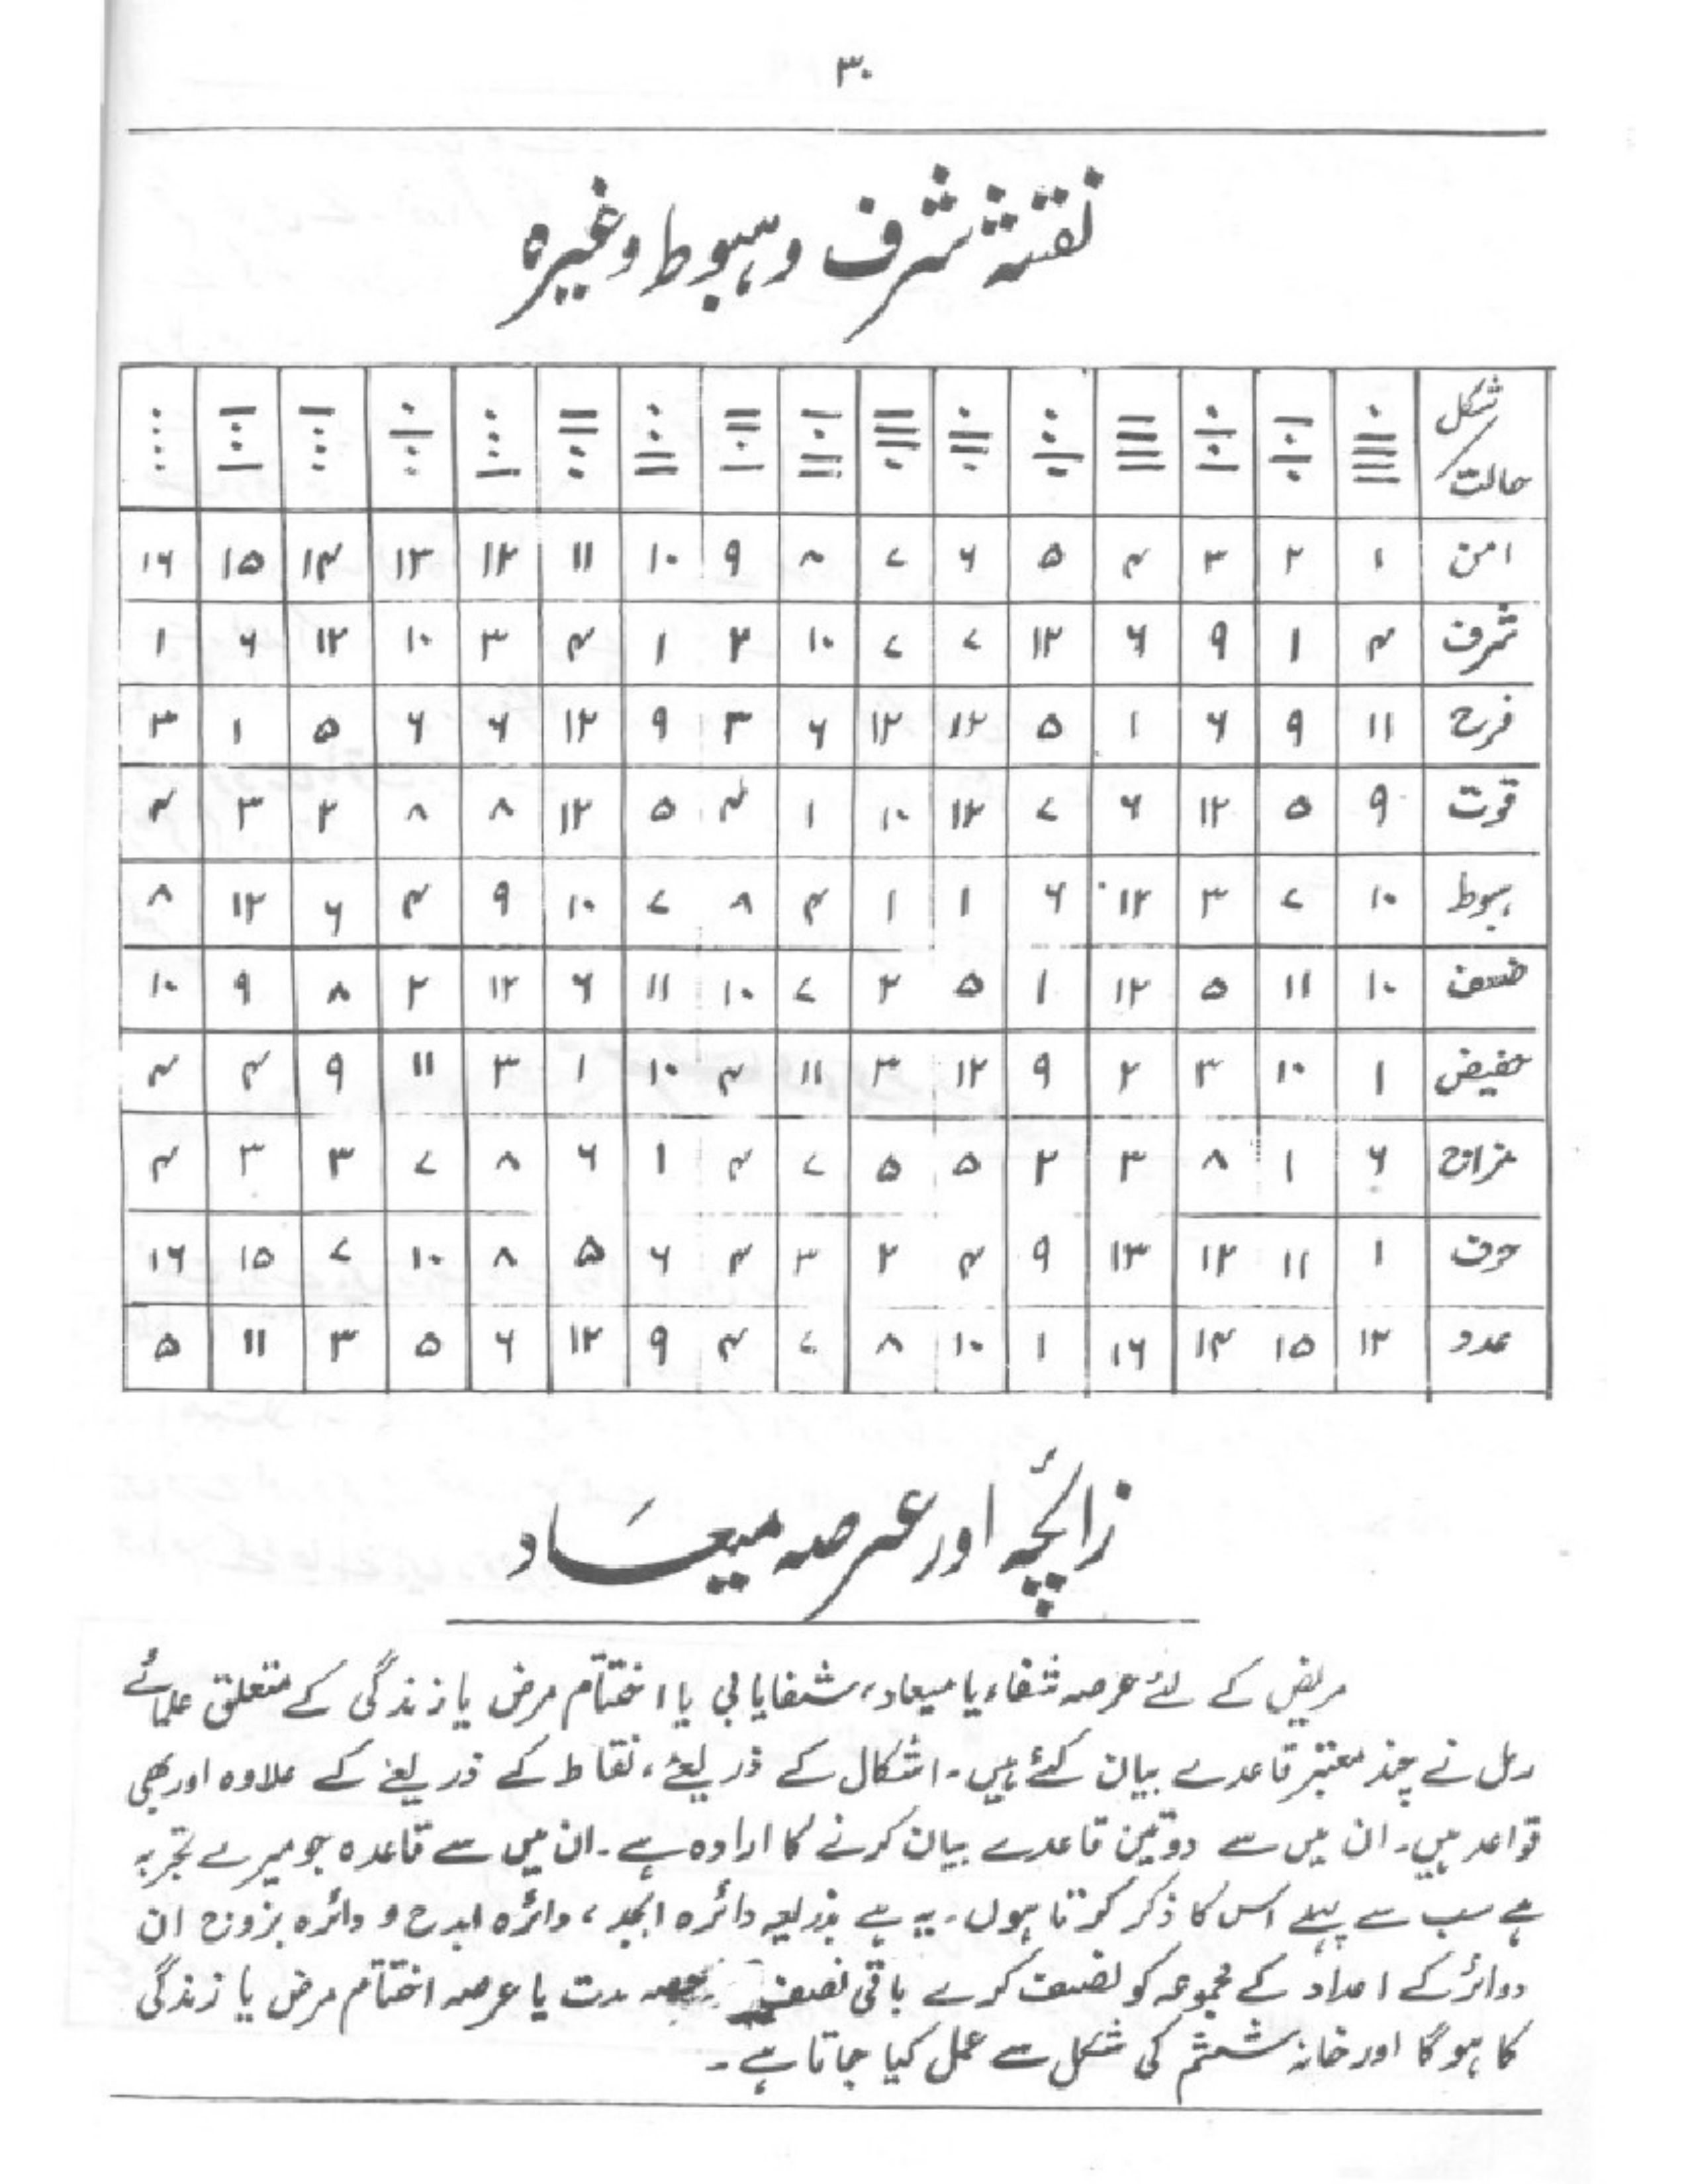 ۳۰
نقشہ شرف و ہبوط وغیرہ
شکل
حالت
امن ۱ ۲ ۳ ۴ ۵ ۶ ۷ ۸ ۹ ۱۰ ۱۱ ۱۲ ۱۳ ۱۴ ۱۵ ۱۶
شرف ۴ ۱ ۹ ۶ ۱۲ ۷ ۷ ۱۰ ۲ ۱ ۴ ۳ ۱۰ ۱۲ ۶ ۱
فرح ۱۱ ۹ ۶ ۱ ۵ ۱۲ ۱۲ ۶ ۳ ۹ ۱۲ ۶ ۶ ۵ ۱ ۳
قوت ۹ ۵ ۱۲ ۶ ۷ ۱۲ ۱۰ ۱ ۴ ۵ ۱۲ ۸ ۸ ۲ ۳ ۴
ہبوط ۱۰ ۷ ۳ ۱۲ ۶ ۱ ۱ ۴ ۸ ۷ ۱۰ ۹ ۴ ۶ ۱۲ ۸
ضعف ۱۰ ۱۱ ۵ ۱۲ ۱ ۵ ۲ ۷ ۱۰ ۱۱ ۶ ۱۲ ۲ ۸ ۹ ۱۰
حفیض ۱ ۱۰ ۳ ۲ ۹ ۱۲ ۳ ۱۱ ۴ ۱۰ ۱ ۳ ۱۱ ۹ ۴ ۴
مزاج ۶ ۱ ۸ ۳ ۲ ۵ ۵ ۷ ۴ ۱ ۶ ۸ ۷ ۳ ۳ ۴
حرف ۱ ۱۱ ۱۲ ۱۳ ۹ ۴ ۲ ۳ ۴ ۶ ۵ ۸ ۱۰ ۷ ۱۵ ۱۶
عدد ۱۲ ۱۵ ۱۴ ۱۶ ۱ ۱۰ ۸ ۷ ۴ ۹ ۱۲ ۶ ۵ ۳ ۱۱ ۵
زائچہ اور عرصہ میعاد
مریض کے لئے عرصہ شفاء یا میعاد، شفایابی یا اختتام مرض یا زندگی کے متعلق علمائے
رمل نے چند معتبر قاعدے بیان کئے ہیں۔ اشکال کے ذریعے، نقاط کے ذریعے کے علاوہ اور بھی
قواعد ہیں۔ ان میں سے دو تین قاعدے بیان کرنے کا ارادہ ہے۔ ان میں سے قاعدہ جو میرے تجربہ
ہے سب سے پہلے اس کا ذکر کرتا ہوں۔ یہ ہے بذریعہ دائرہ ابجد، دائرہ ابدح و دائرہ بزوزح ان
دوائر کے اعداد کے مجموعہ کو نصف کرے باقی نصف حصہ مدت یا عرصہ اختتام مرض یا زندگی
کا ہو گا اور خانہ ششم کی شکل سے عمل کیا جاتا ہے۔